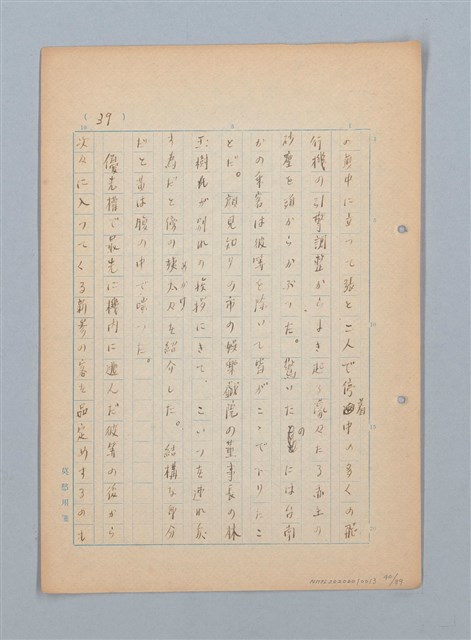 (39)
の真中に立つて張と二人で停留中の多くの飛
行機の引擎調整からまき起る濛々たる飛上の
砂塵を頭からかぶつた。驚いたのには台南
からの乗客は彼等を除いて皆がここで下りたこ
とだ。顔見知りの市の娯楽戯院の董事長の林
玉樹氏が別れの挨拶にきて、こいつを連れ戻
す為だと傍の妖太々を紹介した。結構な身分
だと君は腹の中で唸つた。
優先権で最先に機内に選んだ彼等の後から
次々に入つてくる新客の客を品定めするのも
40/39